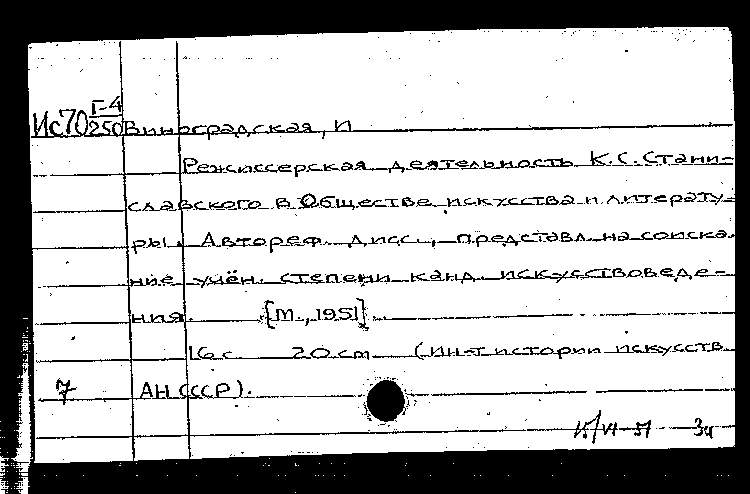 Ис70 Г-4/250 Виноградская, И
Режиссерская деятельность К.С.Стани-
славского в Обществе искусства и литерату-
ры. Автореф. дисс., представл. на соиска-
ние учён. степени канд. искусствоведе-
ния. [М., 1951].
16 с. 20 см (Ин-т истории искусств
7 АН СССР).
15/VI-51 Зи